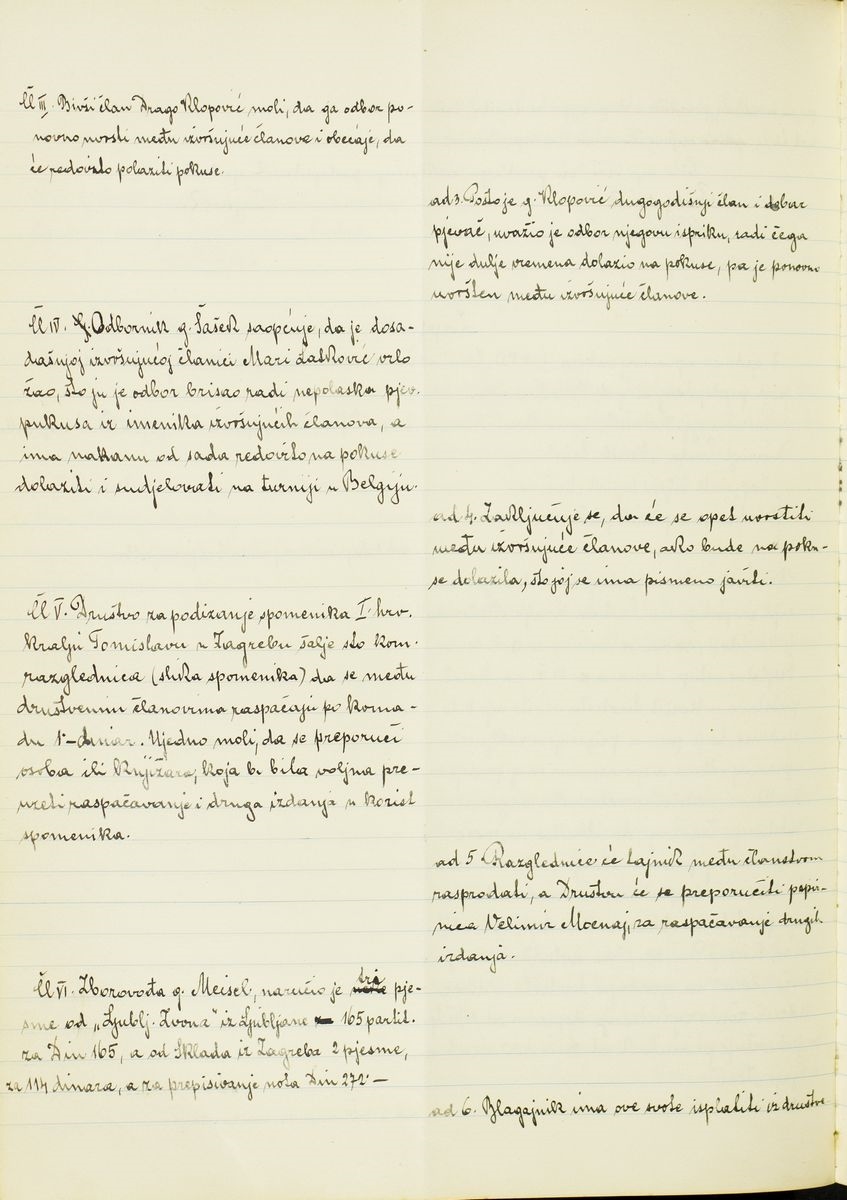 Čl III. Bivši član Drago Klopović moli, da ga odbor po-
novno uvrsti među izvršujuće članove i obećaje, da
će redovito polaziti pokuse.
ad 3. Pošto je g. Klopović dugogodišnji član i dobar
pjevač, uvažio je odbor njegovu ispriku, radi čega
nije dulje vremena dolazio na pokuse, pa je ponovno
uvršten među izvršujuće članove.
Čl IV. Odbornik g. Šašek saopćuje, da je dosa-
dašnjoj izvršujućoj članici Mari Latković vrlo
žao, što ju je odbor brisao radi nepolaska pjev.
pukusa iz imenika izvršujućih članova, a
ima nakanu od sada redovito na pokuse
dolaziti i sudjelovati na turniji u Belgiju.
ad 4. Zaključuje se, da će se opet uvrstiti
među izvršujuće članove, ako bude na poku-
se dolazila, što joj se ima pismeno javiti.
Čl V. Društvo za podizanje spomenika I. hrv.
kralju Tomislavu u Zagrebu šalje sto kom.
razglednica (slika spomenika) da se među
društvenim članovima raspačaju po koma-
du 1·– dinar. Ujedno moli, da se preporuči
osoba ili knjižara, koja bi bila voljna pre-
uzeti raspačavanje i druga izdanja u korist
spomenika.
ad 5. Razglednice će tajnik među članstvom
rasprodati, a Društvu će se preporučiti papir-
nica Velimir Mocnaj, za raspačavanje drugih
izdanja.
Čl VI. Zborovođa g. Meisel, naručio je tri pje-
sme od „Ljublj. Zvona" iz Ljubljane 165 partit.
za Din 165, a od Sklada iz Zagreba 2 pjesme,
za 114 dinara, a za prepisivanje nota Din 272·—
ad 6. Blagajnik ima ove svote isplatiti iz društve